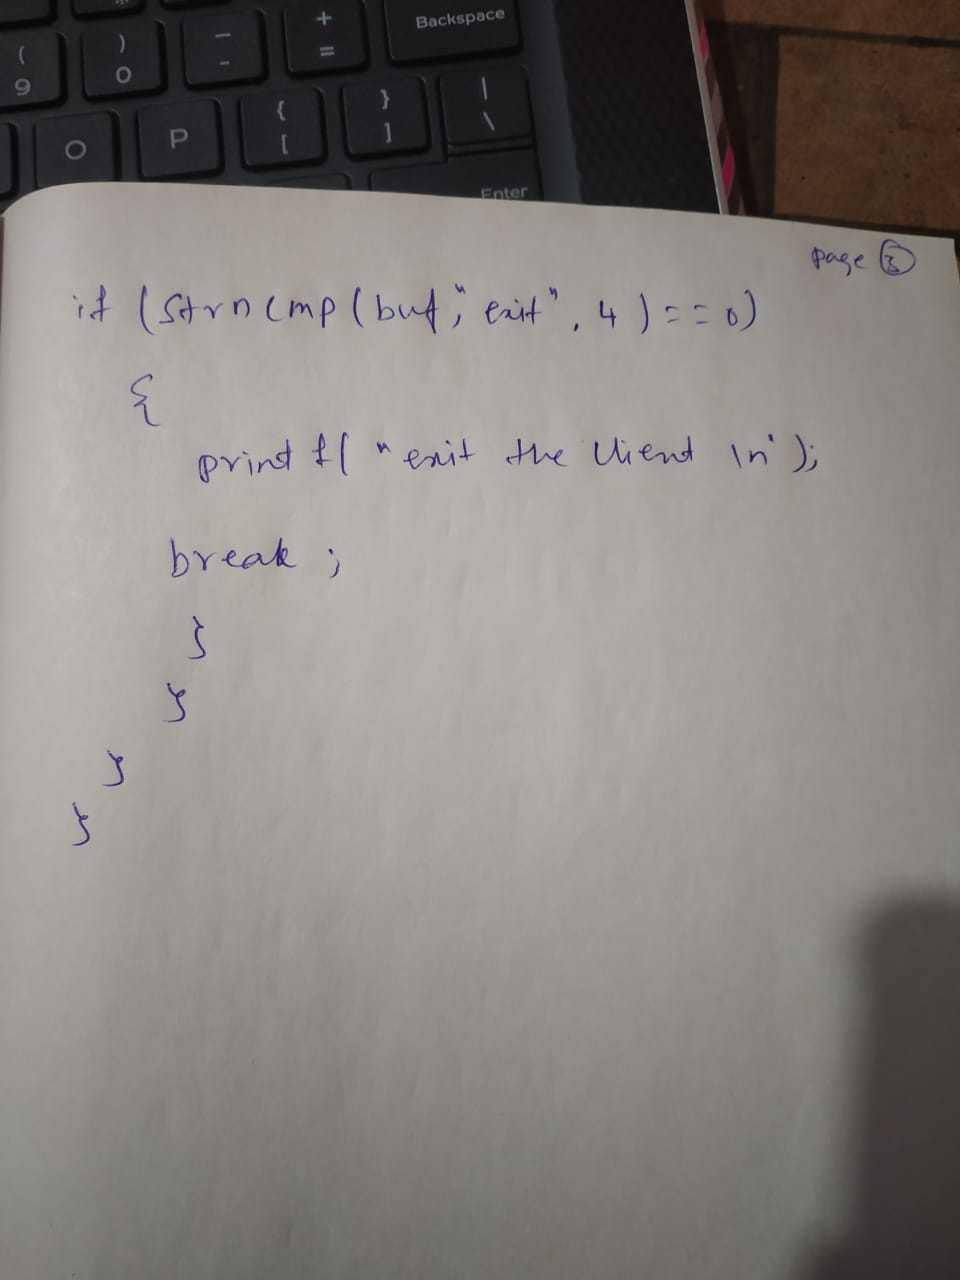 +
=
Backspace
(
9
)
0
_
-
{
[
}
]
|
\
O
P
Enter
page 3
if (strncmp(buf," exit", 4)==0)
{
printf("exit the client \n");
break;
}
}
}
}